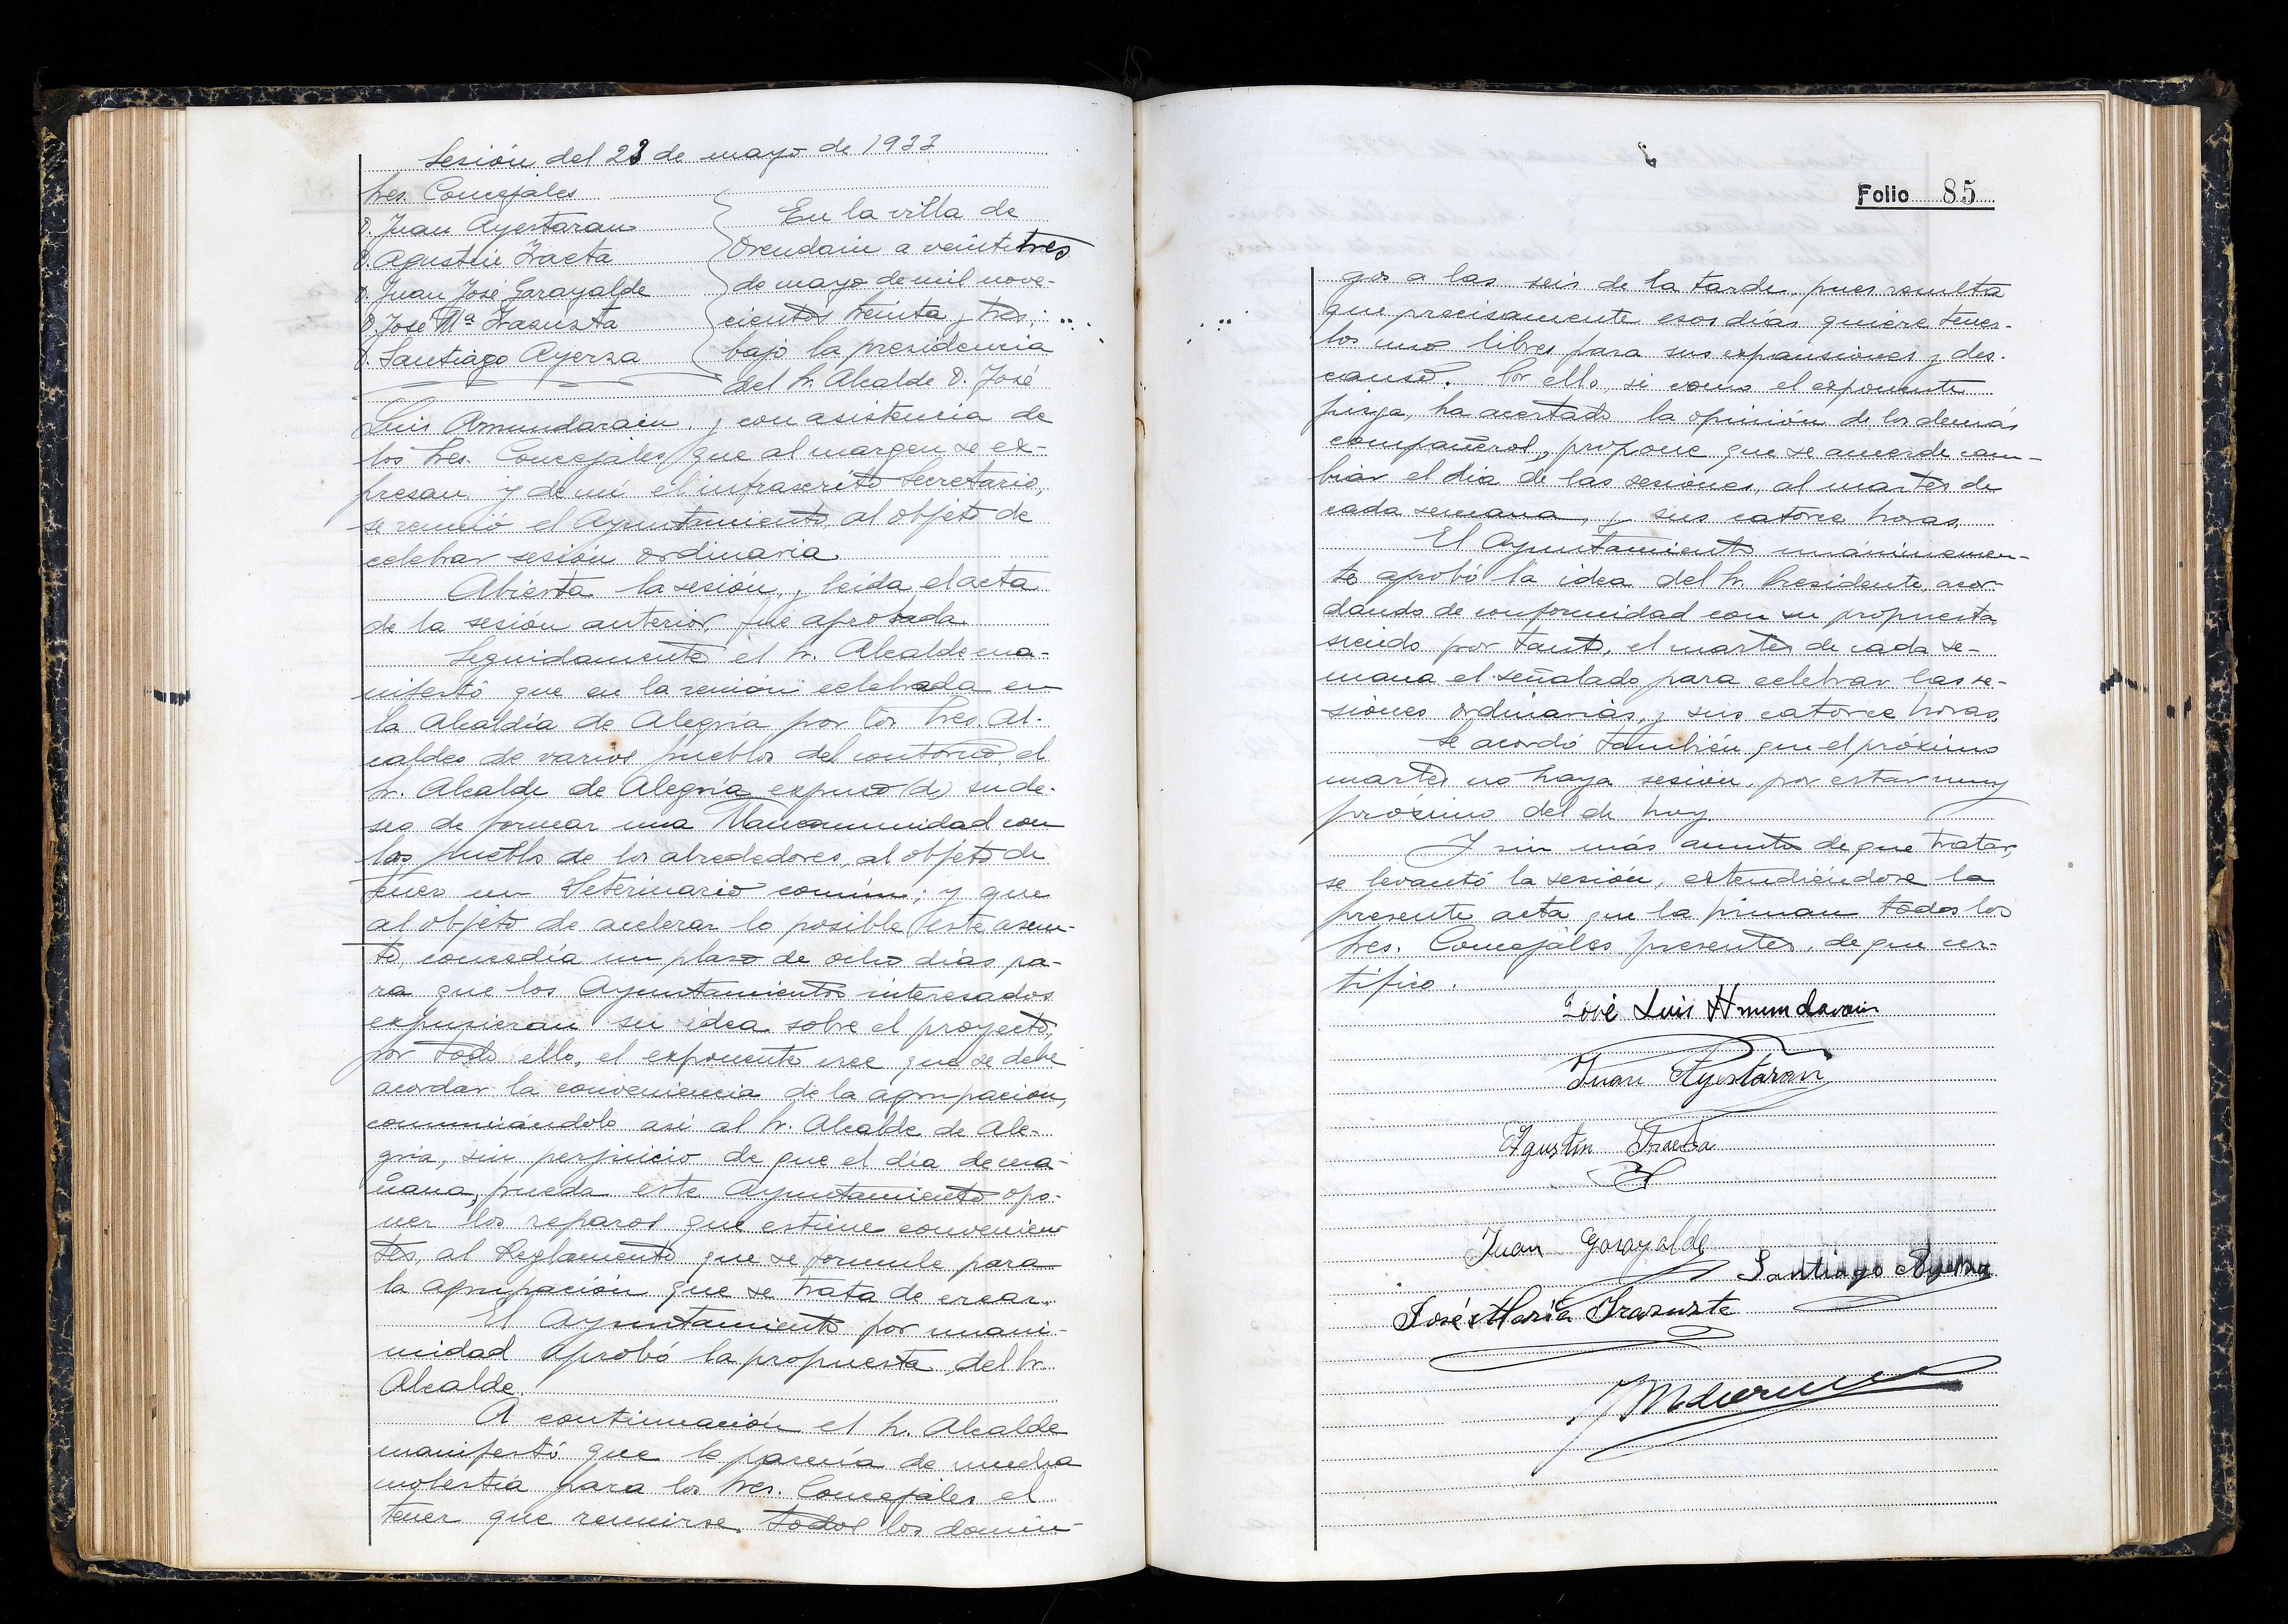 Sesión del 23 de mayo de 1933
Sres. Concejales
D. Juan Ayestaran
D. Agustín Iraeta
D. Juan José Garayalde
D. José Mª Irazusta
D. Santiago Ayerza
En la villa de
Orendain a veintitres
de mayo de mil nove-
cientos treinta y tres;
bajo la presidencia
del Sr. Alcalde D. José
Luis Amundarain y con asistencia de
los Sres. Concejales que al margen se ex-
presan y de mí el infrascrito Secretario,
se reunió el Ayuntamiento al objeto de
celebrar sesión ordinaria.
Abierta la sesión, y leída el acta
de la sesión anterior, fué aprobada.
Seguidamente el Sr. Alcalde ma-
nifestó que en la reunión celebrada en
la Alcaldía de Alegría por los Sres. Al-
caldes de varios pueblos del contorno, el
Sr. Alcalde de Alegría expuso (de) su de-
seo de formar una Mancomunidad con
los pueblos de los alrededores, al objeto de
tener un Veterinario común; y que
al objeto de acelerar lo posible este asun-
to, concedía un plazo de ocho días pa-
ra que los Ayuntamientos interesados
expusieran su idea sobre el proyecto;
por todo ello, el exponente cree que se debe
acordar la conveniencia de la agrupación,
comunicándolo así al Sr. Alcalde de Ale-
gría, sin perjuicio de que el día de ma-
ñana, pueda este Ayuntamiento opo-
ner los reparos que estime convenien
tes, al Reglamento que se formule para
la agrupación que se trata de crear.
El Ayuntamiento por unani-
midad aprobó la propuesta del Sr.
Alcalde.
A continuación el Sr. Alcalde
manifestó que le parecía de mucha
molestia para los Sres. Concejales el
tener que reunirse todos los domin-
Folio 85
gos a las seis de la tarde, pues resulta
que precisamente esos días quiere tener-
los uno libres para sus expansiones y des-
canso. Por ello si como el exponente
juzga, ha acertado la opinión de los demás
compañeros, propone que se acuerde cam-
biar el día de las sesiones, al martes de
cada semana, y sus catorce horas.
El Ayuntamiento unánimemen-
te aprobó la idea del Sr. Presidente, acor-
dando de conformidad con su propuesta,
siendo por tanto, el martes de cada se-
mana el señalado para celebrar las se-
siones ordinarias, y sus catorce horas.
Se acordó también que el próximo
martes no haya sesión, por estar muy
próximo del de hoy.
Y sin más asunto de que tratar,
se levantó la sesión, extendiéndose la
presente acta que la firman todos los
Sres. Concejales presentes, de que cer-
tifico.
José Luis Amundarain
Juan Ayestaran
Agustín Iraeta
Juan Garayalde
Santiago Ayerza
José María Irazusta